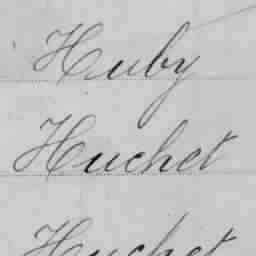 Huby
Huchet
Huchet